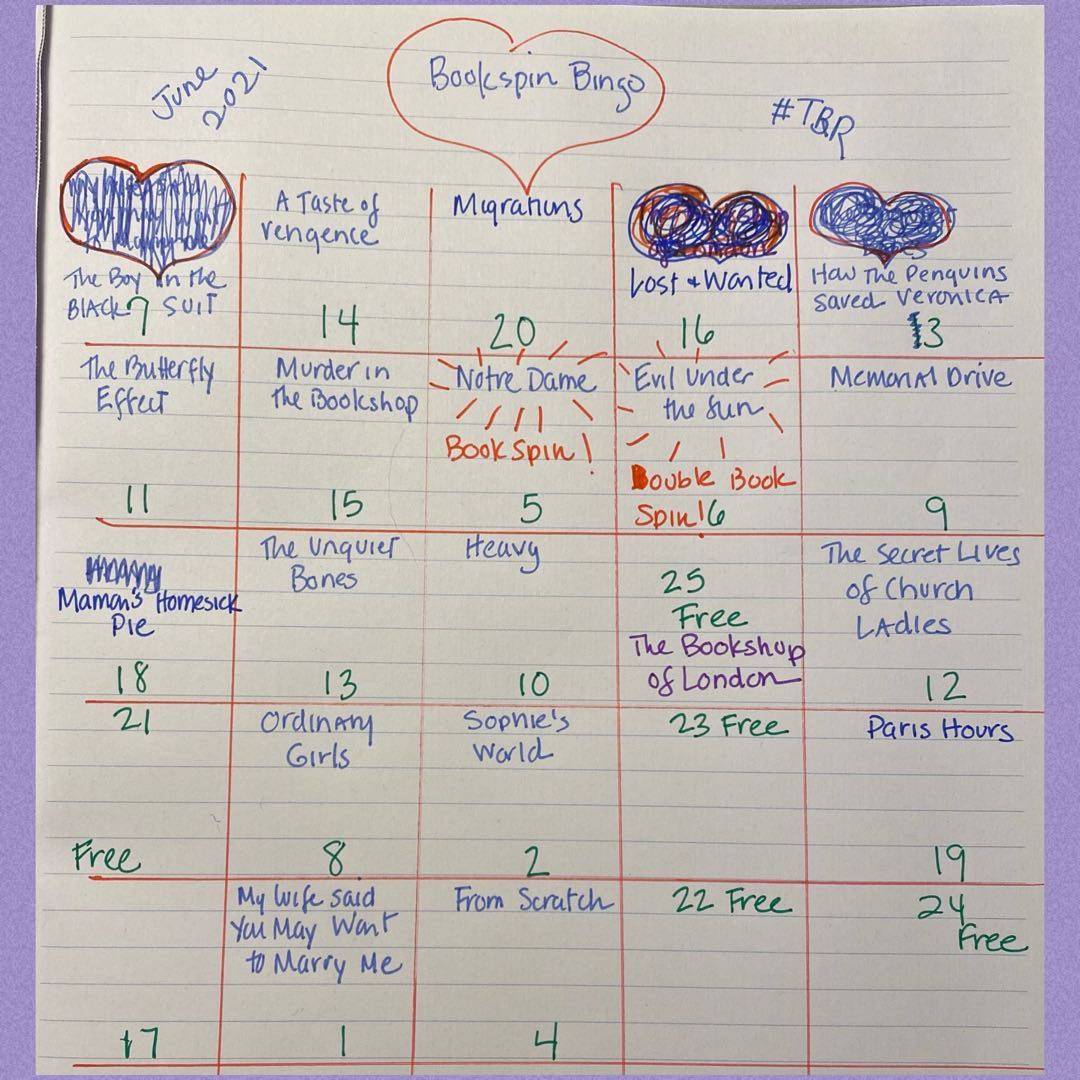 June
2021
Bookspin Bingo
#TBR
The Boy in the
BLACK SUIT
7
A Taste of
vengence
14
Migrations
20
Lost + Wanted
16
How The Penguins
saved Veronica
3
The Butterfly
Effect
11
Murder in
The Bookshop
15
Notre Dame
Book Spin!
5
Evil Under
the Sun
Double Book
Spin! 6
Memorial Drive
9
Maman's Homesick
Pie
18
The Unquiet
Bones
13
Heavy
10
25
Free
The Bookshop
of London
The Secret Lives
of Church
Ladies
12
21
Free
Ordinary
Girls
8
Sophie's
World
2
23 Free
Paris Hours
19
17
My Wife said
You May Want
to Marry Me
1
From Scratch
4
22 Free
24
Free